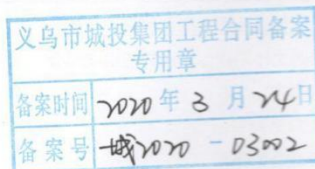 义乌市城投集团工程合同备案
专用章
备案时间 2020 年 3 月 24 日
备案号 城2020-03002